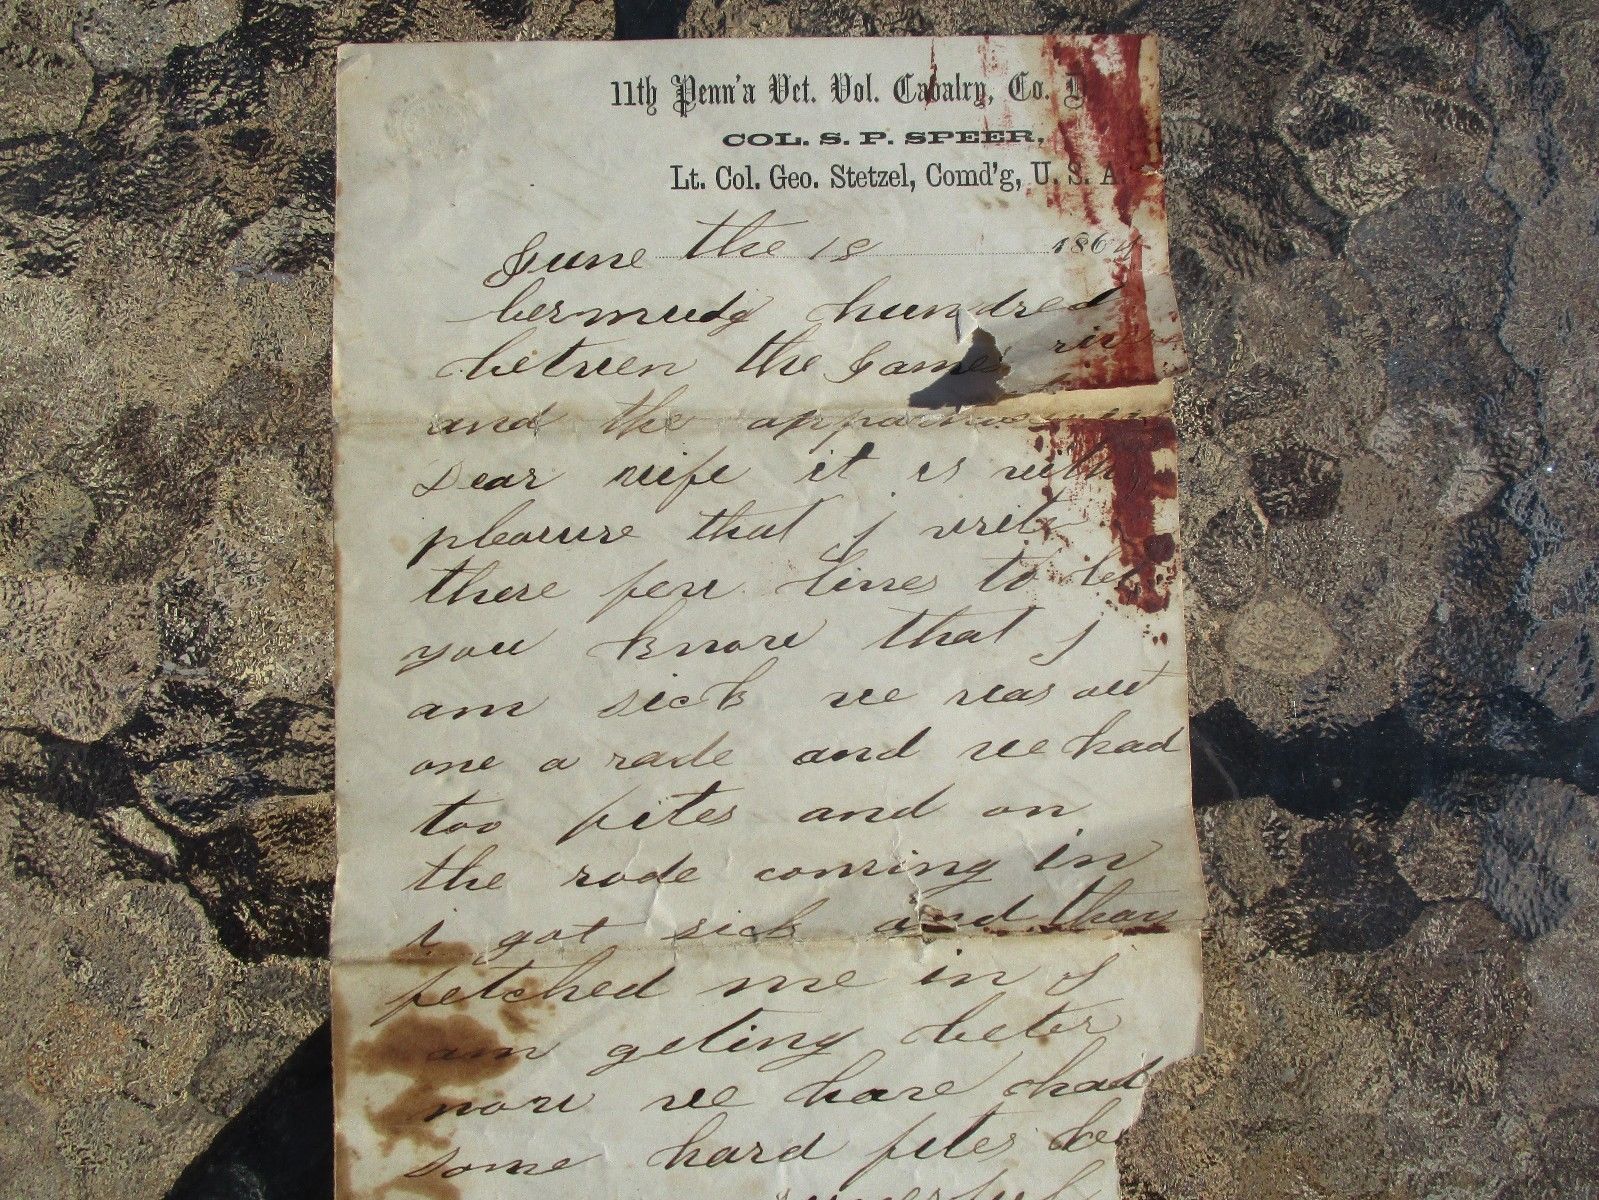 11th Penn'a Vet. Vol. Cavalry, Co. D
COL. S. P. SPEER,
Lt. Col. Geo. Stetzel, Comd'g, U. S. A
June the 18 1864
bermudy hundred
betwen the James riv
and the
Dear wife it is with
pleasure that j write
these few lines to let
you know that j
am sick we was out
one a rade and we had
too fites and on
the rode coming in
i got sick and thay
fetched me in j
am geting beter
now we have had
some hard fites